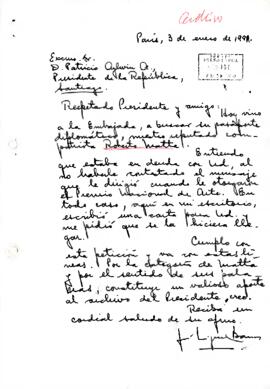 archivo
París, 3 de enero de 1991.
Excmo. Sr.
D. Patricio Aylwin A.,
Presidente de la República,
Santiago
Respetado Presidente y amigo: Hoy vino
a la Embajada, a buscar su pasaporte
diplomático, nuestro reputado com-
patriota Roberto Matta.
Entiendo
que estaba en deuda con Ud. al
no haberle contestado el mensaje
que le dirigió cuando le otorgaron
el Premio Nacional de Arte. En
todo caso, aquí en mi escritorio,
escribió una carta para Ud.
me pidió que se la hiciera lle-
gar.
Cumplo con
esta petición y va con estas lí-
neas. Por la categoría de Matta
y por el sentido de sus pala-
bras, constituye un valioso aporte
al archivo del Presidente, creo.
Reciba un
cordial saludo de su afmo.